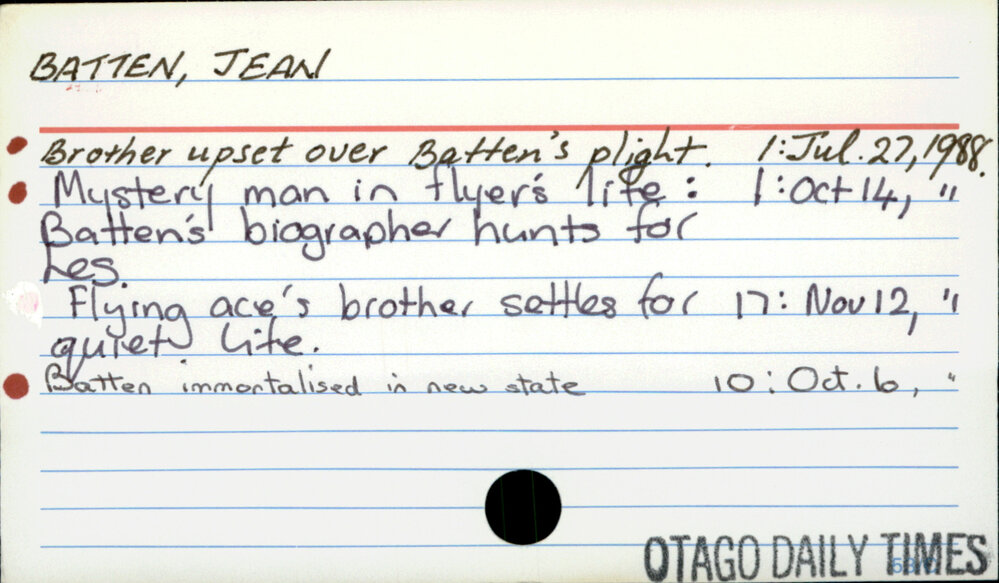 BATTEN, JEAN
Brother upset over Batten's plight. 1: Jul. 27, 1988.
Mystery man in flyer's life : 1 : Oct 14, "
Batten's biographer hunts for
Les.
Flying ace's brother settles for 17 : Nov 12, "
quiet life.
Batten immortalised in new state 10 : Oct. 6, "
OTAGO DAILY TIMES